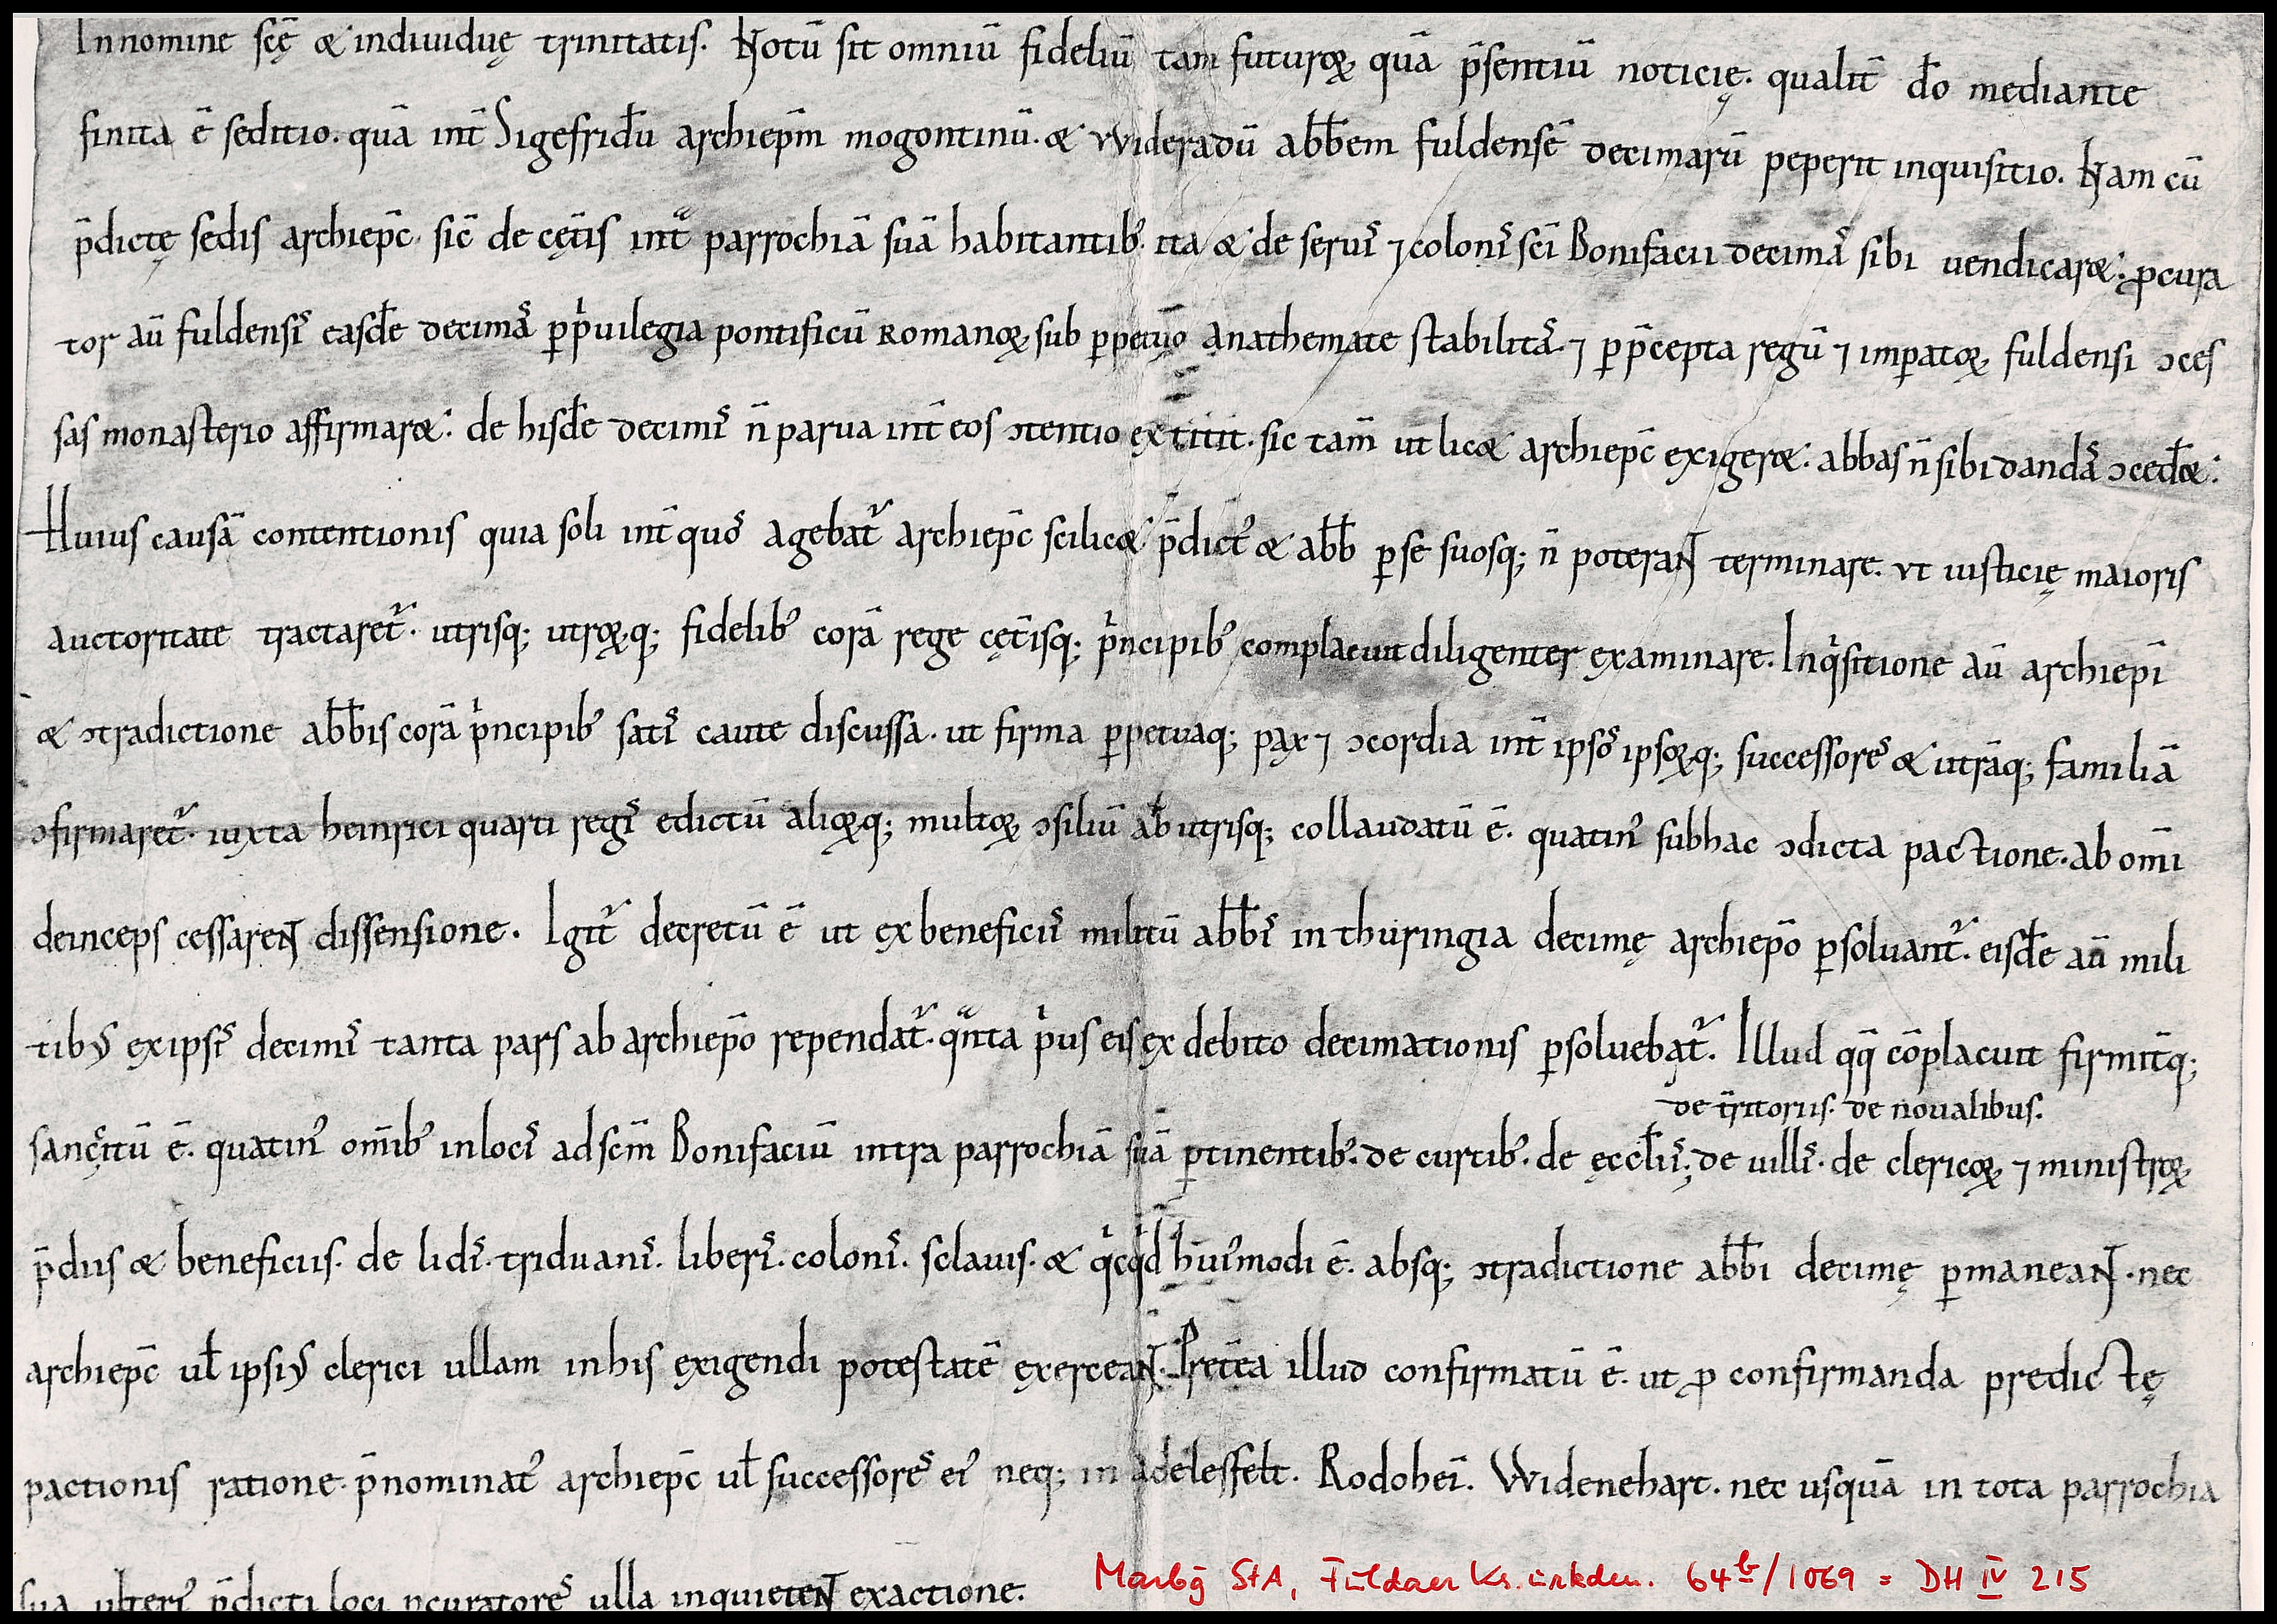 In nomine scę & indiuiduę trinitatis. Notū sit omniū fideliū tam futuroꝝ quā p̄sentiū noticię. qualit̄ do̅ mediante
finita ē seditio. quā int̄ Sigefridu̅ archiepm̄ mogontinū. & Wideradū abbem̄ fuldensē decimarū peperit inquisitio. Nam cū
p̄dictę sedis archiepc̄. sic̄ de cęt̄is intᷓ parrochiā suā habitantibꝰ. ita & de seruis̄ ⁊ colonis̄ sci̅ Bonifacii decimas̄ sibi uendicar&. ꝓcura
tor au̅ fuldensis̄ easde̅ decimas̄ ꝑ pͥuilegia pontificū Romanoꝝ sub ꝑpetuo anathemate stabilitas̄. ⁊ ꝑ p̄cepta regū ⁊ imꝑatoꝝ fuldensi ɔces
sas monasterio affirmar&. de hisde̅ decimis̄ n̄ parua int̄ eos ɔtentio extitit. sic tam̄ ut lic& archiepc̄ exiger&. abbas n̄ sibi dandas̄ ɔced̄&.
Huius causā contentionis quia soli int̄ quos̄ agebat᷑ archiepc̄ scilic& p̄dictꝰ & abb̄ ꝑ se suosq; n̄ poterant terminare. ut iusticię maioris
auctoritate tractaret᷑. utrisq; utroꝝq; fidelibꝰ corā rege cęt̄isq; pͥncipibꝰ complacuit diligenter examinare. Inqͥsitione au̅ archiepi̅
& ɔtradictione abbis̄ corā pͥncipibꝰ satis̄ caute discussa. ut firma ꝑpetuaq; pax ⁊ ɔcordia int̄ ipsos̄ ipsoꝝq; successores̄ & utrāq; familiā
ɔfirmaret᷑. iuxta heinrici quarti regis̄ edictū alioꝝq; multoꝝ ɔsiliū ab utrisq; collaudatū ē. quatinꝰ sub hac ɔdicta pactione. ab om̄i
deinceps cessarent dissensione. Igit᷑ decretū ē ut ex beneficiis̄ militū abbis̄ in thuringia decimę archiepo̅ ꝑsoluant᷑. eisde̅ au̅ mili
tibꝰ ex ipsis̄ decimis̄ tanta pars ab archiepo̅ rependat᷑. qᷓnta pͥus eis ex debito decimationis ꝑsoluebat᷑. Illud qq̄ cōplacuit firmit̄q;
sancitū ē. quatinꝰ om̄ibꝰ in locis̄ ad scm̄ Bonifaciū intra parrochiā suā ꝑtinentibꝰ. de curtibꝰ. de ęccl̄iis̄. de uillis̄. de clericoꝝ ⁊ ministroꝝ
de t̄ritoriis. de noualibus.
p̄diis & beneficiis. de lidis̄. triduanis̄. liberis̄. colonis̄. sclauis. & qͥcqͥd huiꝰmodi ē. absq; ɔtradictione abbi̅ decimę ꝑmaneant. nec
archiepc̄ ul̄ ipsiꝰ clerici ullam in his exigendi potestatē exerceant. Pret̄ea illud confirmatū ē. ut ꝓ confirmanda predictę
pactionis ratione. p̄nominatꝰ archiepc̄ ul̄ successores̄ eiꝰ neq; in adelesfelt. Rodohei̅. Widenehart. nec usquā in tota parrochia
sua ulteriꝰ p̄dicti loci ꝓcuratores̄ ulla inquietent exactione.
Marbg StA, Fuldaer Ks. urkden. 64ᵇ/1069 = DH IV 215